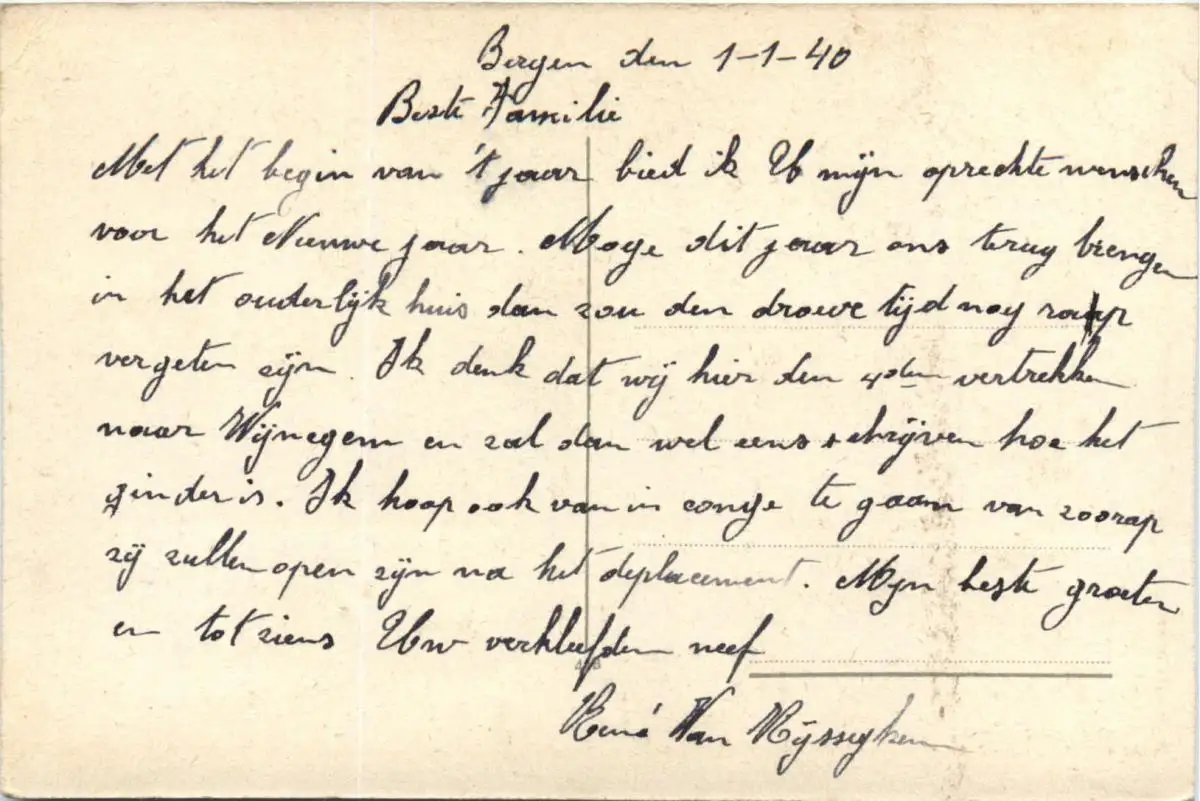 Bergen den 1-1-40
Beste Familie
Met het begin van 't jaar bied ik U mijn oprechte wenschen
voor het Nieuwe jaar. Moge dit jaar ons terug brengen
in het ouderlijk huis dan zou den droeve tijd nog
vergeten zijn. Ik denk dat wij hier den 4den vertrekken
naar Wijnegem en zal dan wel eens schrijven hoe het
ginder is. Ik hoop ook van in conge te gaan van zoorap
zij zullen open zijn na het deplacement. Mijn beste groeten
en tot ziens Uw verkleefden neef
René Van